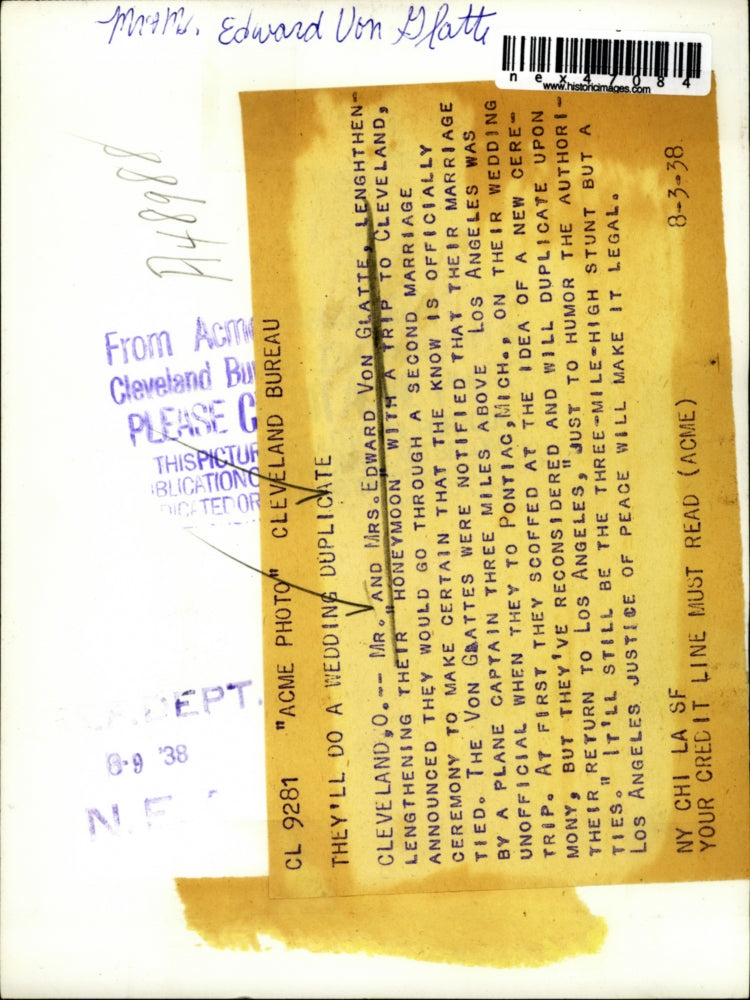 Mr + Mr. Edward Von Glatte
nex47084
www.historicimages.com
A48988
From Acme
Cleveland Bu
PLEASE C
THIS PICTUR
BLICATION O
DICATED OR
DEPT.
8-9 '38
N. E.
CL 9281 "ACME PHOTO" CLEVELAND BUREAU
THEY'LL DO A WEDDING DUPLICATE
CLEVELAND,O.-- MR. AND MRS.EDWARD VON GLATTE, LENGHTHEN-
LENGTHENING THEIR "HONEYMOON" WITH A TRIP TO CLEVELAND,
ANNOUNCED THEY WOULD GO THROUGH A SECOND MARRIAGE
CEREMONY TO MAKE CERTAIN THAT THE KNOW IS OFFICIALLY
TIED. THE VON GLATTES WERE NOTIFIED THAT THEIR MARRIAGE
BY A PLANE CAPTAIN THREE MILES ABOVE LOS ANGELES WAS
UNOFFICIAL WHEN THEY TO PONTIAC,MICH., ON THEIR WEDDING
TRIP. AT FIRST THEY SCOFFED AT THE IDEA OF A NEW CERE-
MONY, BUT THEY'VE RECONSIDERED AND WILL DUPLICATE UPON
THEIR RETURN TO LOS ANGELES, "JUST TO HUMOR THE AUTHORI-
TIES. "IT'LL STILL BE THE THREE-MILE-HIGH STUNT BUT A
LOS ANGELES JUSTICE OF PEACE WILL MAKE IT LEGAL.
NY CHI LA SF 8-3-38
YOUR CREDIT LINE MUST READ (ACME)